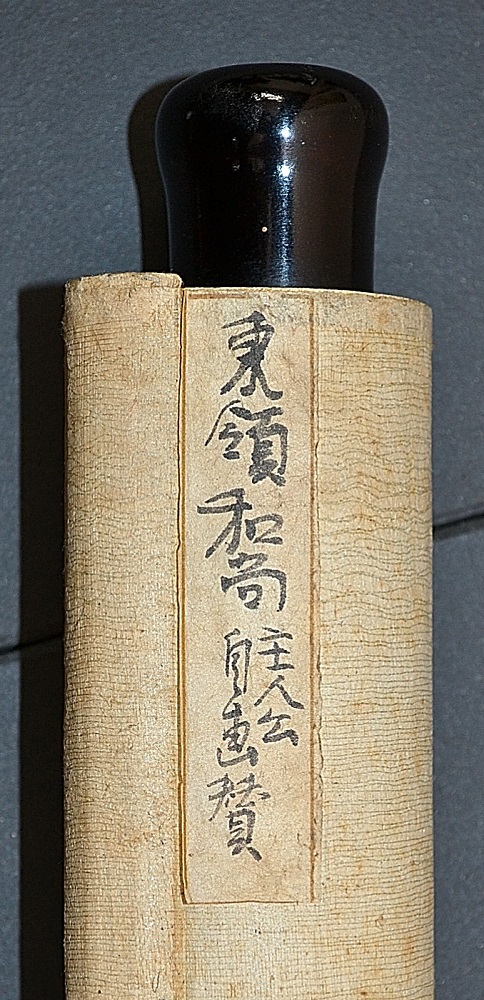 東嶺和尚
主人公
自画賛